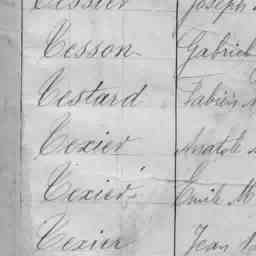 Tessier Joseph
Tesson Gabriel
Testard Fabien
Texier Anatole
Texier Emile M
Texier Jean